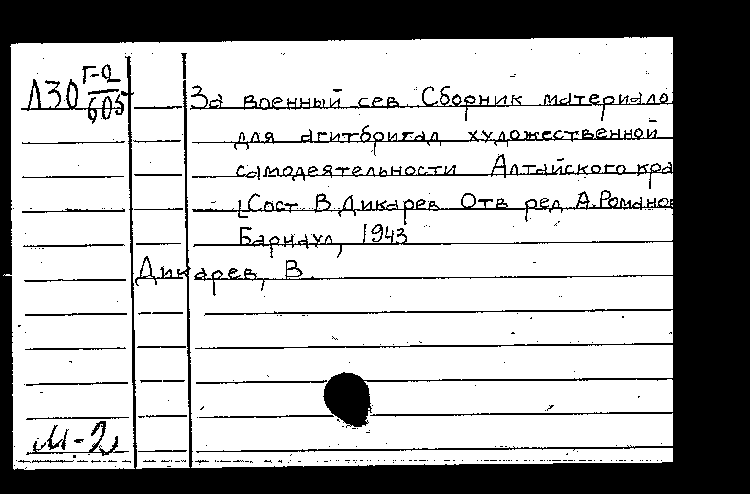 Л30 Г-2/605
За военный сев Сборник материало
для агитбригад художественной
самодеятельности Алтайского кра
[Сост В. Дикарев Отв ред А. Романов
Барнаул, 1943
Дикарев, В.
М-2